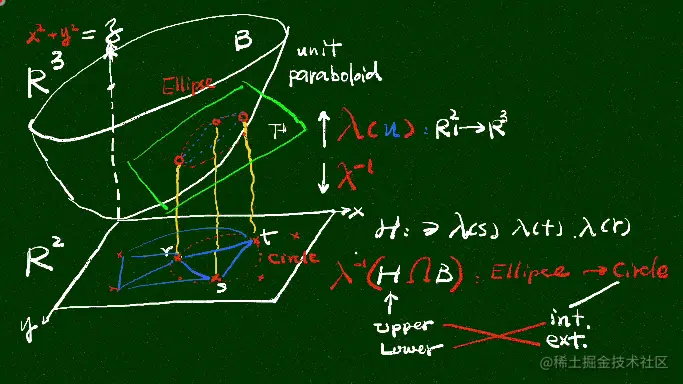 x²+y² = z
B
unit
paraboloid
R³
Ellipse
H
λ(u) : R² → R³
λ⁻¹
x
R²
r
t
s
Circle
y
H : ∋ λ(s), λ(t), λ(r)
λ⁻¹(H ∩ B) : Ellipse → Circle
upper
Lower
int.
ext.
@稀土掘金技术社区